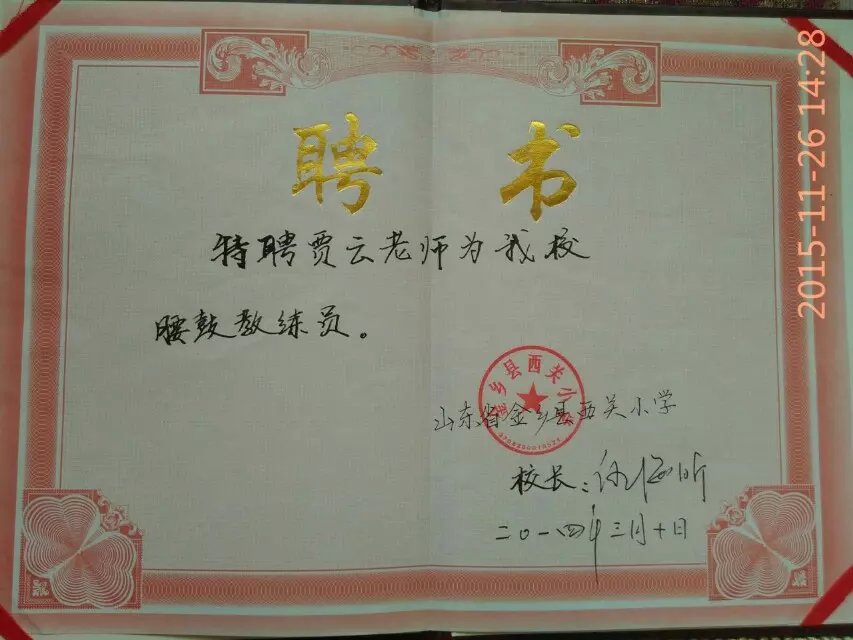 聘书
特聘贾云老师为我校
腰鼓教练员。
金乡县西关小学
山东省金乡县西关小学
校长:
二〇一四年三月十日
2015-11-26 14:28